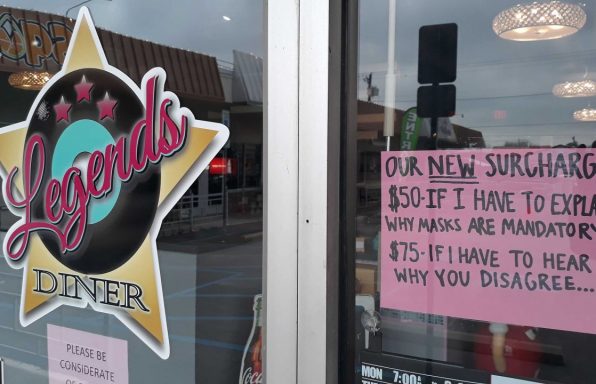 Legends
DINER
PLEASE BE
CONSIDERATE
OUR NEW SURCHARG
$50-IF I HAVE TO EXPLA
WHY MASKS ARE MANDATORY
$75-IF I HAVE TO HEAR
WHY YOU DISAGREE...
MON 7:00